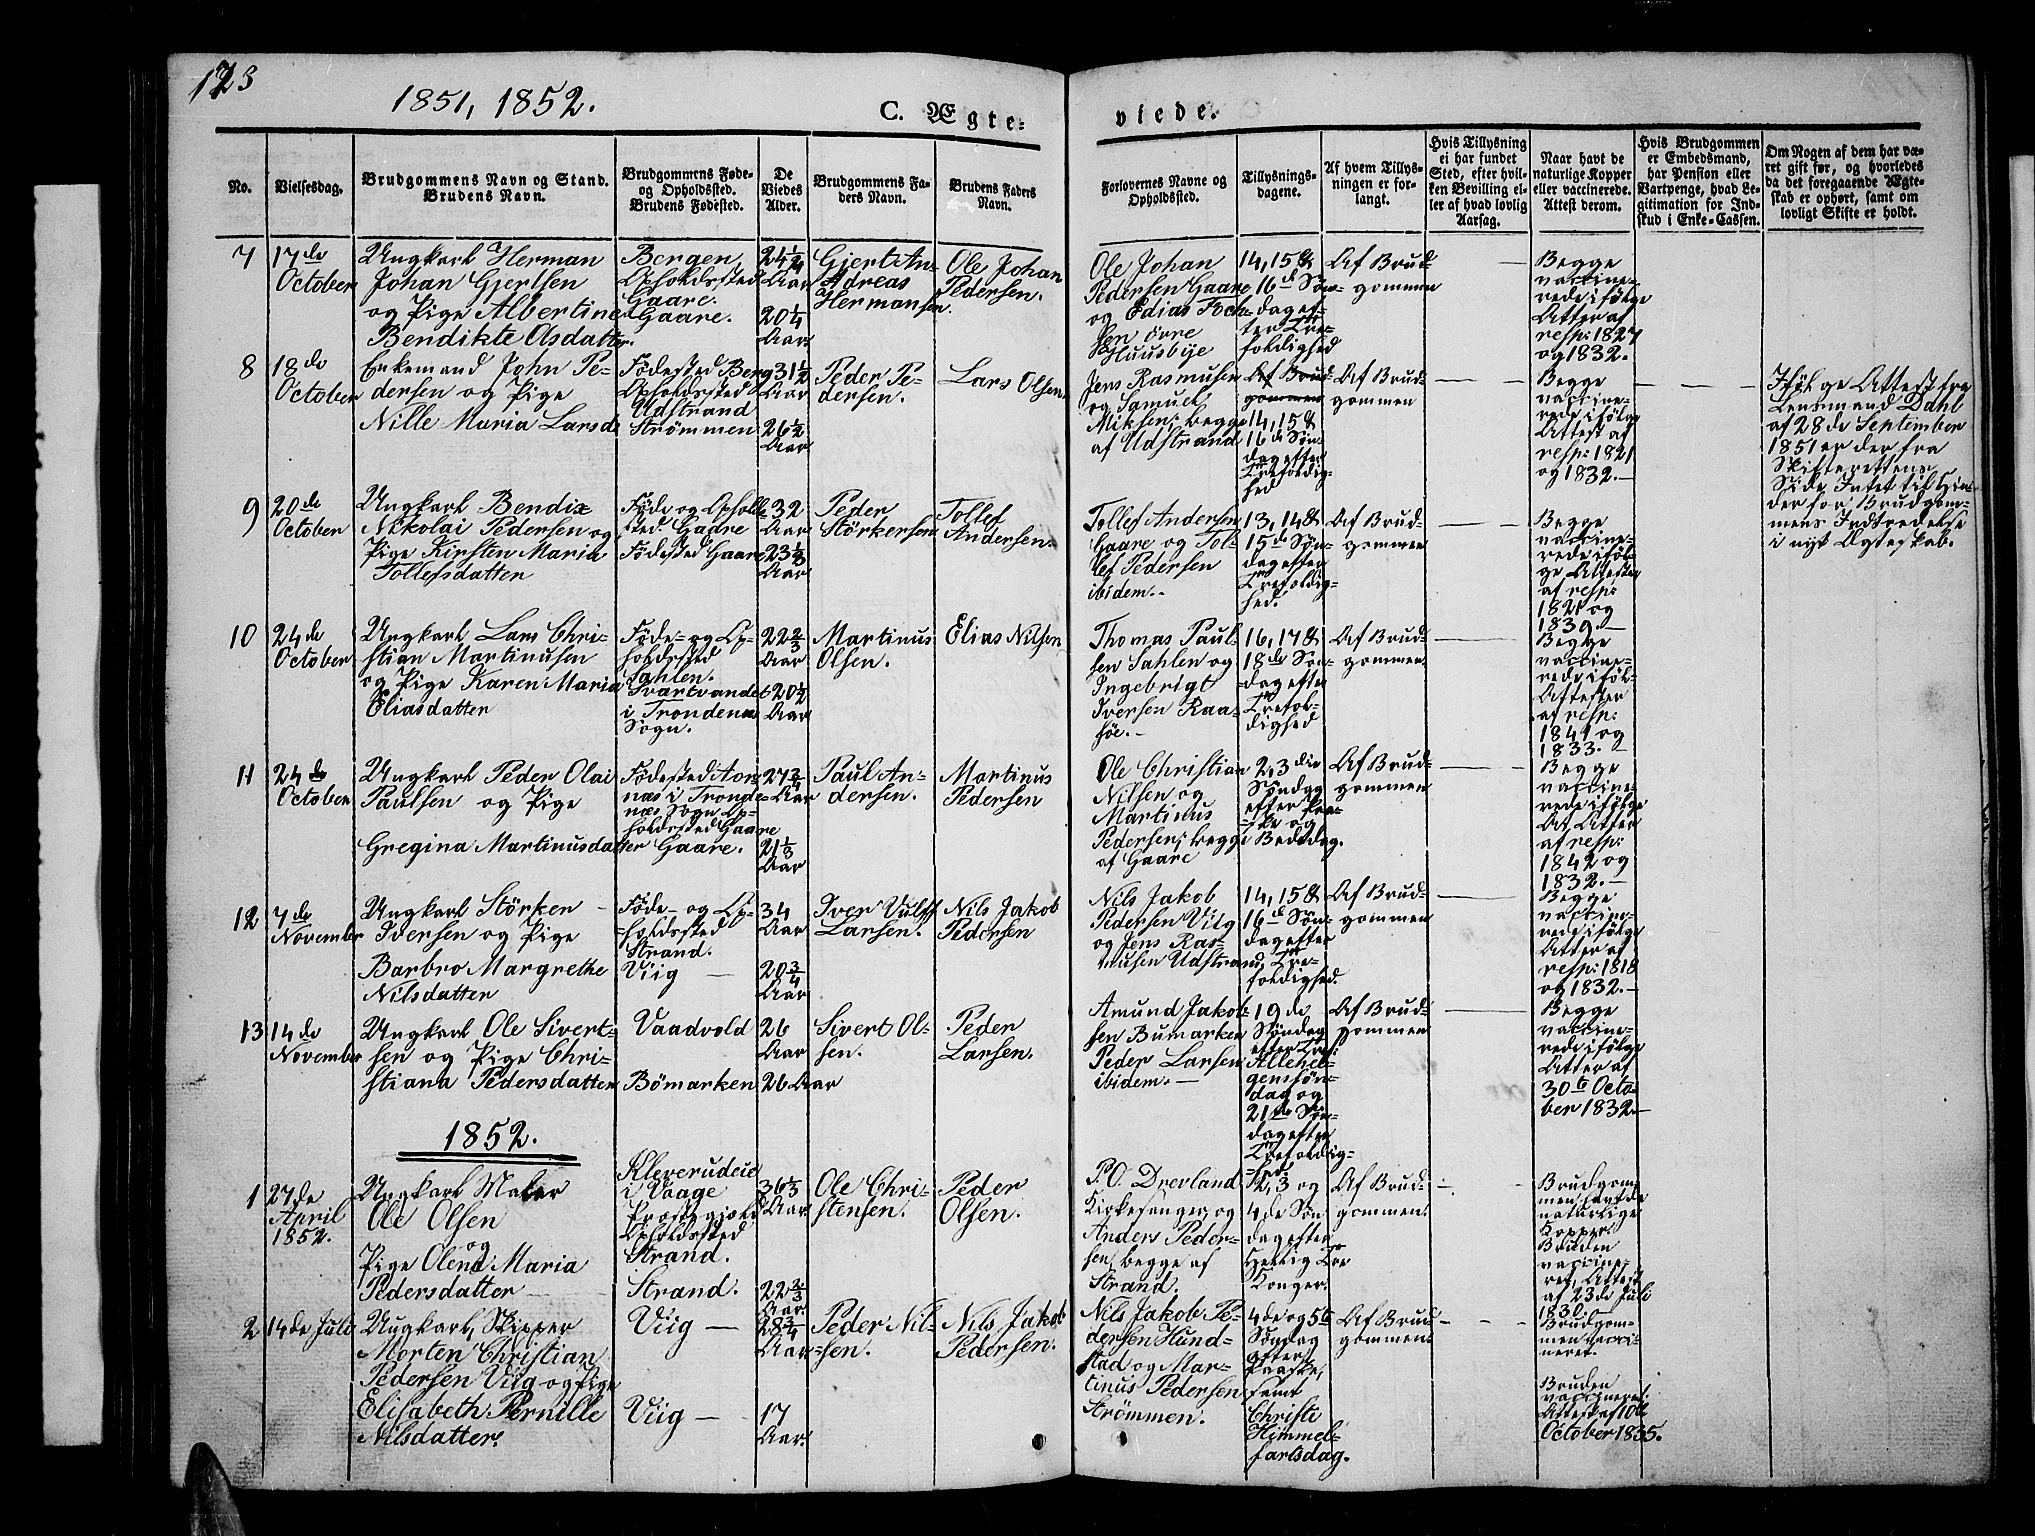 123
1851, 1852.
C. Ægte=
viede.
No.
Vielsesdag.
Brudgommens Navn og Stand.
Brudens Navn.
Brudgommens Føde-
og Opholdssted.
Brudens Fødested.
De
Viedes
Alder.
Brudgommens Fa-
ders Navn.
Brudens Faders
Navn.
Forlovernes Navne og
Opholdssted.
Tillysnings-
dagene.
Af hvem Tillys-
ningen er for-
langt.
Hvis Tillysning
ei har fundet
Sted, efter hvil-
ken Bevilling el-
ler af hvad lovlig
Aarsag.
Naar havt de
naturlige Kopper
eller vaccinerede.
Attest derom.
Hvis Brudgommen
er Embedsmand,
har Pension eller
Vartpenge, hvad Le-
gitimation for Ind-
skud i Enke-Cassen.
Om Nogen af dem har væ-
ret gift før, og hvorledes
da det foregaaende Ægte-
skab er ophørt, samt om
lovligt Skifte er holdt.
7
17de
October
Ungkarl Herman
Johan Gjertsen
og Pige Albertine
Bendikte Olsdatter.
Bergen,
Opholdssted
Gaare.
Gaare.
24 1/4
Aar
20 1/4
Aar
Gjert An-
dreas
Hermansen.
Ole Johan
Pedersen.
Ole Johan
Pedersen Gaare
og Edias
sen övre
Huusbye
14, 15 &
16de Søn-
dag ef-
ter Tre-
foldighed
Af Brud-
gommen
Begge
vaccine-
rede ifølge
Atter af
resp: 1827
og 1832.
8
18de
October
Enkemand John Pe-
dersen og Pige
Nille Maria Larsd
Fødested Berg
Opholdssted
Udstrand
Strømmen
31 1/2
Aar
26 1/2
Aar
Peder Pe-
dersen.
Lars Olsen.
Jens Rasmusen
og Samuel
Miksen, begge
af Udstrand
Af Brud-
gommen
14, 15 &
16de Søn-
dag efter
Trefoldig-
hed
Af Brud-
gommen
Begge
vaccine-
rede ifølge
Attest af
resp: 1821
og 1832.—
Ifølge Attest fra
Lensmand Dahl
af 28de September
1851 er der fra
Skifterettens
Side Intet til Hin-
der for Brudgom-
mens Indtrædelse
i nyt Ægteskab.
9
20de
October
Ungkarl Bendix
Nikolai Pedersen og
Pige Kirsten Maria
Tollefsdatter
Føde og Ophold-
sted Gaare
Fødested Gaare
32
Aar
23 1/2
Aar
Peder
Störkersen
Tollef
Andersen.
Tollef Andersen
Gaare og Tol-
lef Pedersen
ibidem.-
13, 14 &
15de Søn-
dag efter
Trefoldig-
hed.
Af Brud-
gommen
Begge
vaccine-
rede iføl-
ge Attester
af resp:
1821 og
1839.—
10
24de
October
Ungkarl Lars Chri-
stian Martinusen
og Pige Karen Maria
Eliasdatter
Føde- og Op-
holdssted
Sahlen.
Svartvandet
i Trondenæs
Sogn.
22 2/3
Aar
20 1/2
Aar
Martinus
Olsen.
Elias Nilsen
Thomas Paul-
sen Sahlen og
Ingebrigt
Iversen Raa-
söe.-
16, 17 &
18de Søn-
dag efter
Trefol-
dighed
Af Brud-
gommen.
Begge
vaccine-
rede iføl-
Attester
af resp:
1841 og
1833.—
11
24de
October
Ungkarl Peder Olai
Paulsen og Pige
Gregina Martinusdatter
Fødested Aar-
næs i Tronde-
næs Sogn Op-
holdssted Gaare
Gaare.
27 3/4
Aar
21 1/3
Aar
Paul An-
dersen.
Martinus
Pedersen
Ole Christian
Nilsen og
Martinus
Pedersen, begge
af Gaare
2, 3die
Søndag
efter Paa-
ske og
Bededag.
Af Brud-
gommen
Begge
vaccine-
rede ifølge
Atter
af resp:
1842 og
1832.—
12
7de
November
Ungkarl Störken
Iversen og Pige
Barbro Margrethe
Nilsdatter
Føde- og Op-
holdssted
Strand.
Viig —
34
Aar
20 3/4
Aar
Iver Vulff
Larsen.
Nils Jakob
Pedersen
Nils Jakob
Pedersen Viig
og Jens Ras-
musen Udstrand
14, 15 &
16de Søn-
dag efter
Tre-
foldighed.
Af Brud-
gommen
Begge
vaccine-
rede ifølge
Atter af
resp: 1818
og 1832.—
13
14de
November
Ungkarl Ole Sivert-
sen og Pige Chri-
stiana Pedersdatter
Vaadvold
Bömarken
26
Aar
26 Aar
Sivert Ol-
sen.
Peder
Larsen.
Amund Jakob-
sen Bumarken
Peder Larsen
ibidem.—
19de
Søndag
efter Tref:
Allehel-
genssøn-
dag og
21de Søn-
dag efter
Trefoldig-
hed.
Af Brud-
gommen
Begge
vaccine-
rede ifølge
Atter af
30te Octo-
ber 1832.—
1852.
1
27de
April
1852.
Ungkarl Maler
Ole Olsen
og
Pige Olena Maria
Pedersdatter
Kleverudeie
i Vaage
Præstegjeld
Opholdssted
Strand.
Strand.
36 1/3
Aar
22 2/3
Aar.
Ole Chri-
stensen.
Peder
Olsen.
P.O. Drevland
Kirkesanger og
Anders Peder-
sen, begge af
Strand.
2, 3 og
4de Søn-
dag efter
Hellig Tre
Konger.
Af Brud-
gommen.
Brudgom-
men havt de
naturlige
Kopper.
Bruden
vaccine-
ret, Attest
af 23de Juli
1830.—
2
14de Juli
Ungkarl, Skipper
Morten Christian
Pedersen Viig og Pige
Elisabeth Pernille
Nilsdatter.
Viig —
Viig —
28 3/4
Aar
17
Aar.
Peder Nil-
sen.
Nils Jakob
Pedersen.
Nils Jakob Pe-
dersen Hund-
stad og Mar-
tinus Pedersen,
Strömmen.
4de og 5te
Søndag
efter
Paaske,
samt
Christi
Himmel-
fartsdag.
Af Brud-
gommen.
Brudgom-
men vacci-
neret.
Bruden
vaccineret.
Attest af 10de
October 1835.